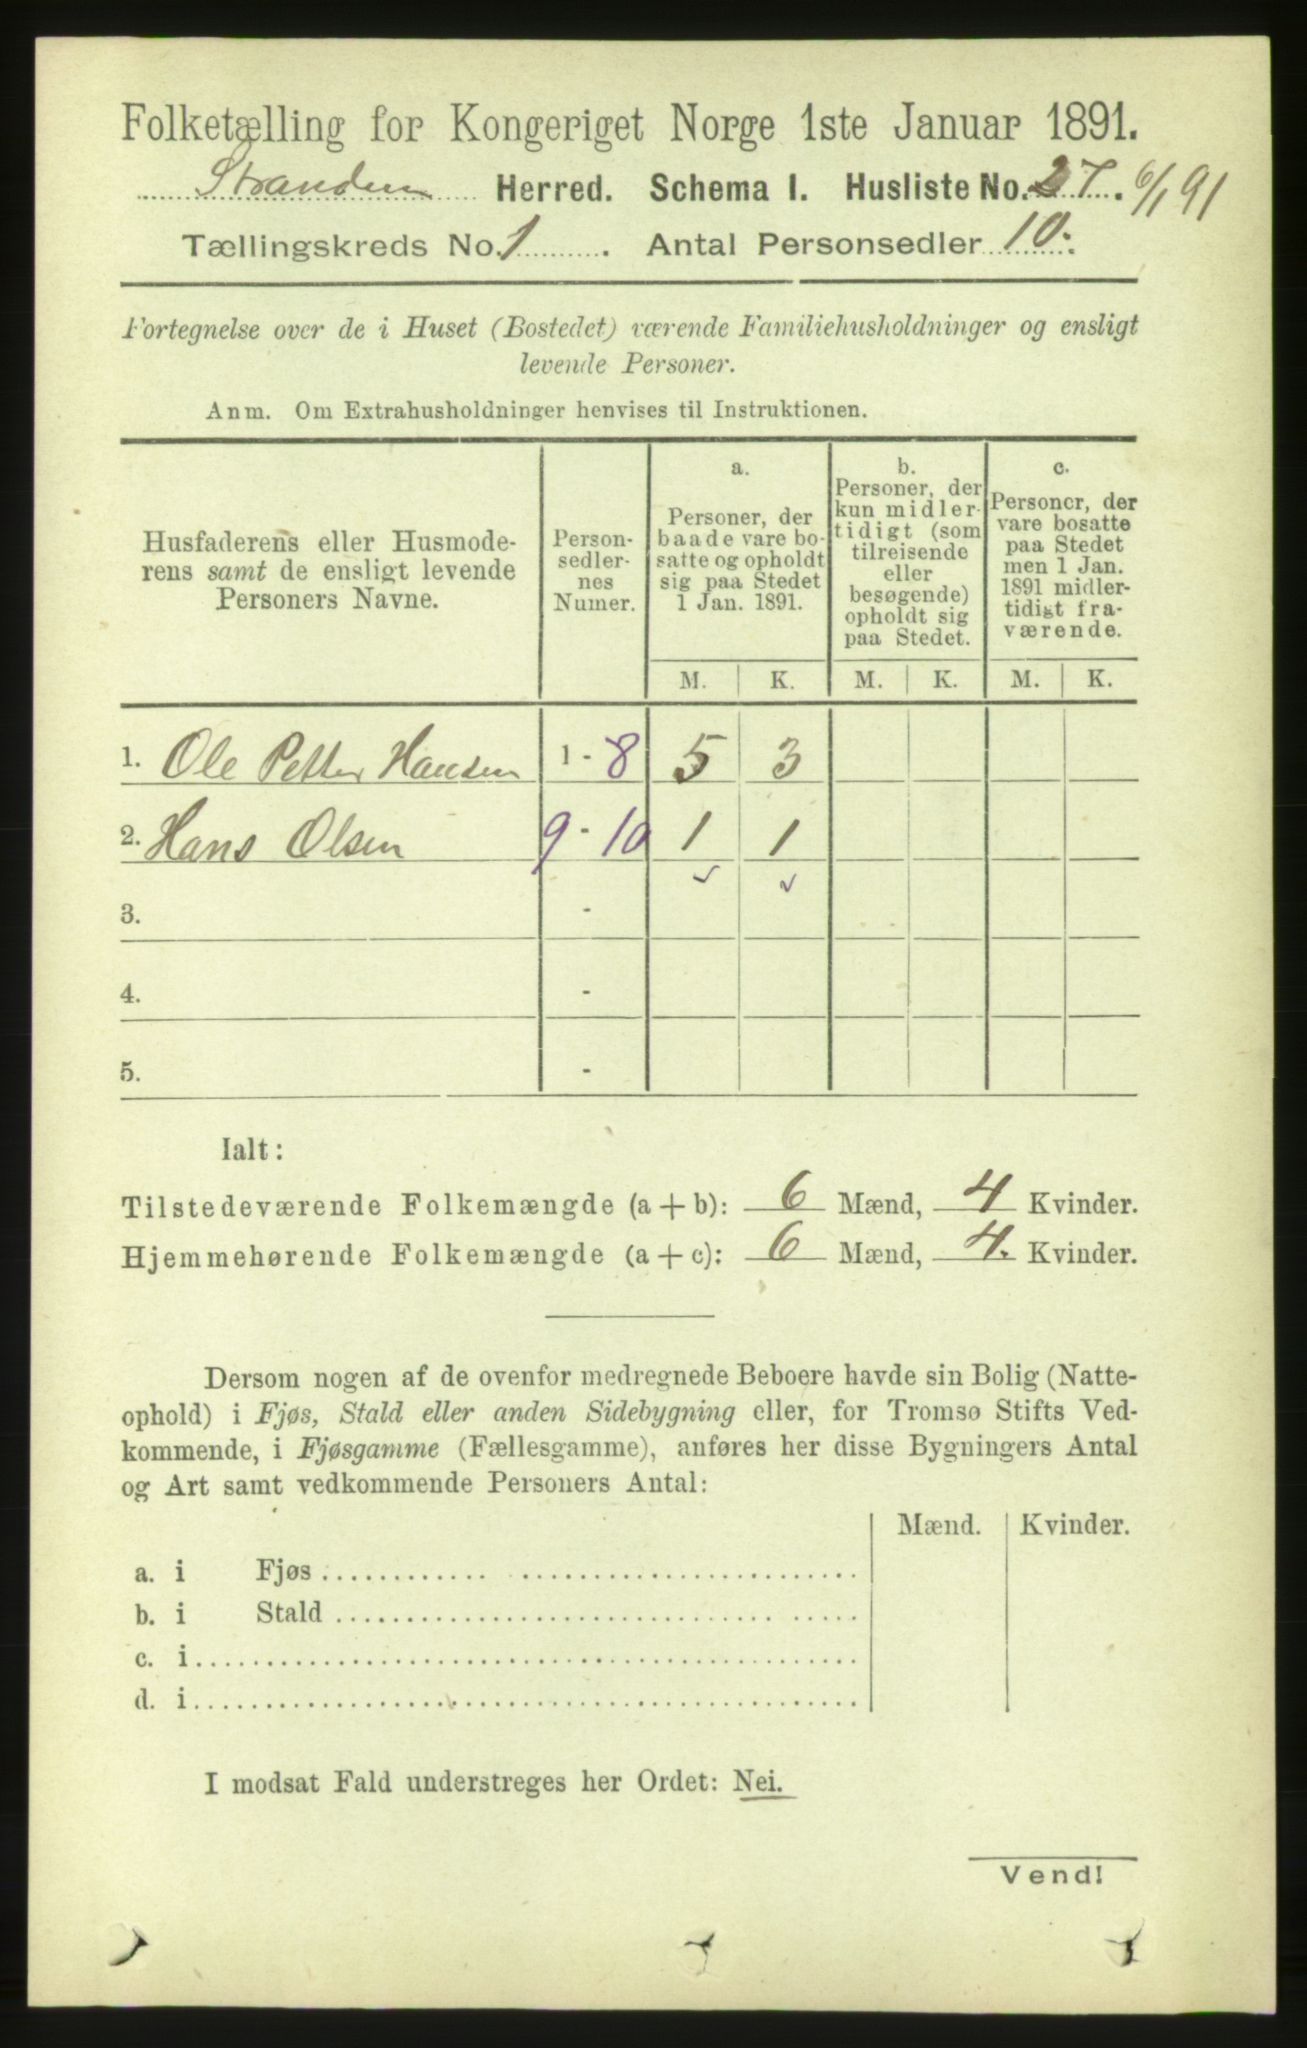 Folketælling for Kongeriget Norge 1ste Januar 1891.
Stranden Herred. Schema I. Husliste No. 27. 6/1 91
Tællingskreds No. 1. Antal Personsedler 10.
Fortegnelse over de i Huset (Bostedet) værende Familiehusholdninger og ensligt
levende Personer.
Anm. Om Extrahusholdninger henvises til Instruktionen.
Husfaderens eller Husmode-
rens samt de ensligt levende
Personers Navne.
Person-
sedler-
nes
Numer.
a.
Personer, der
baade vare bo-
satte og opholdt
sig paa Stedet
1 Jan. 1891.
b.
Personer, der
kun midler-
tidigt (som
tilreisende
eller
besøgende)
opholdt sig
paa Stedet.
c.
Personer, der
vare bosatte
paa Stedet
men 1 Jan.
1891 midler-
tidigt fra-
værende.
M. K. M. K. M. K.
1. Ole Petter Hansen 1 - 8 5 3
2. Hans Olsen 9 - 10 1 1
3. -
4. -
5. -
Ialt:
Tilstedeværende Folkemængde (a + b): 6 Mænd, 4 Kvinder.
Hjemmehørende Folkemængde (a + c): 6 Mænd, 4. Kvinder.
Dersom nogen af de ovenfor medregnede Beboere havde sin Bolig (Natte-
ophold) i Fjøs, Stald eller anden Sidebygning eller, for Tromsø Stifts Ved-
kommende, i Fjøsgamme (Fællesgamme), anføres her disse Bygningers Antal
og Art samt vedkommende Personers Antal:
Mænd. Kvinder.
a. i Fjøs
b. i Stald
c. i
d. i
I modsat Fald understreges her Ordet: Nei.
Vend!